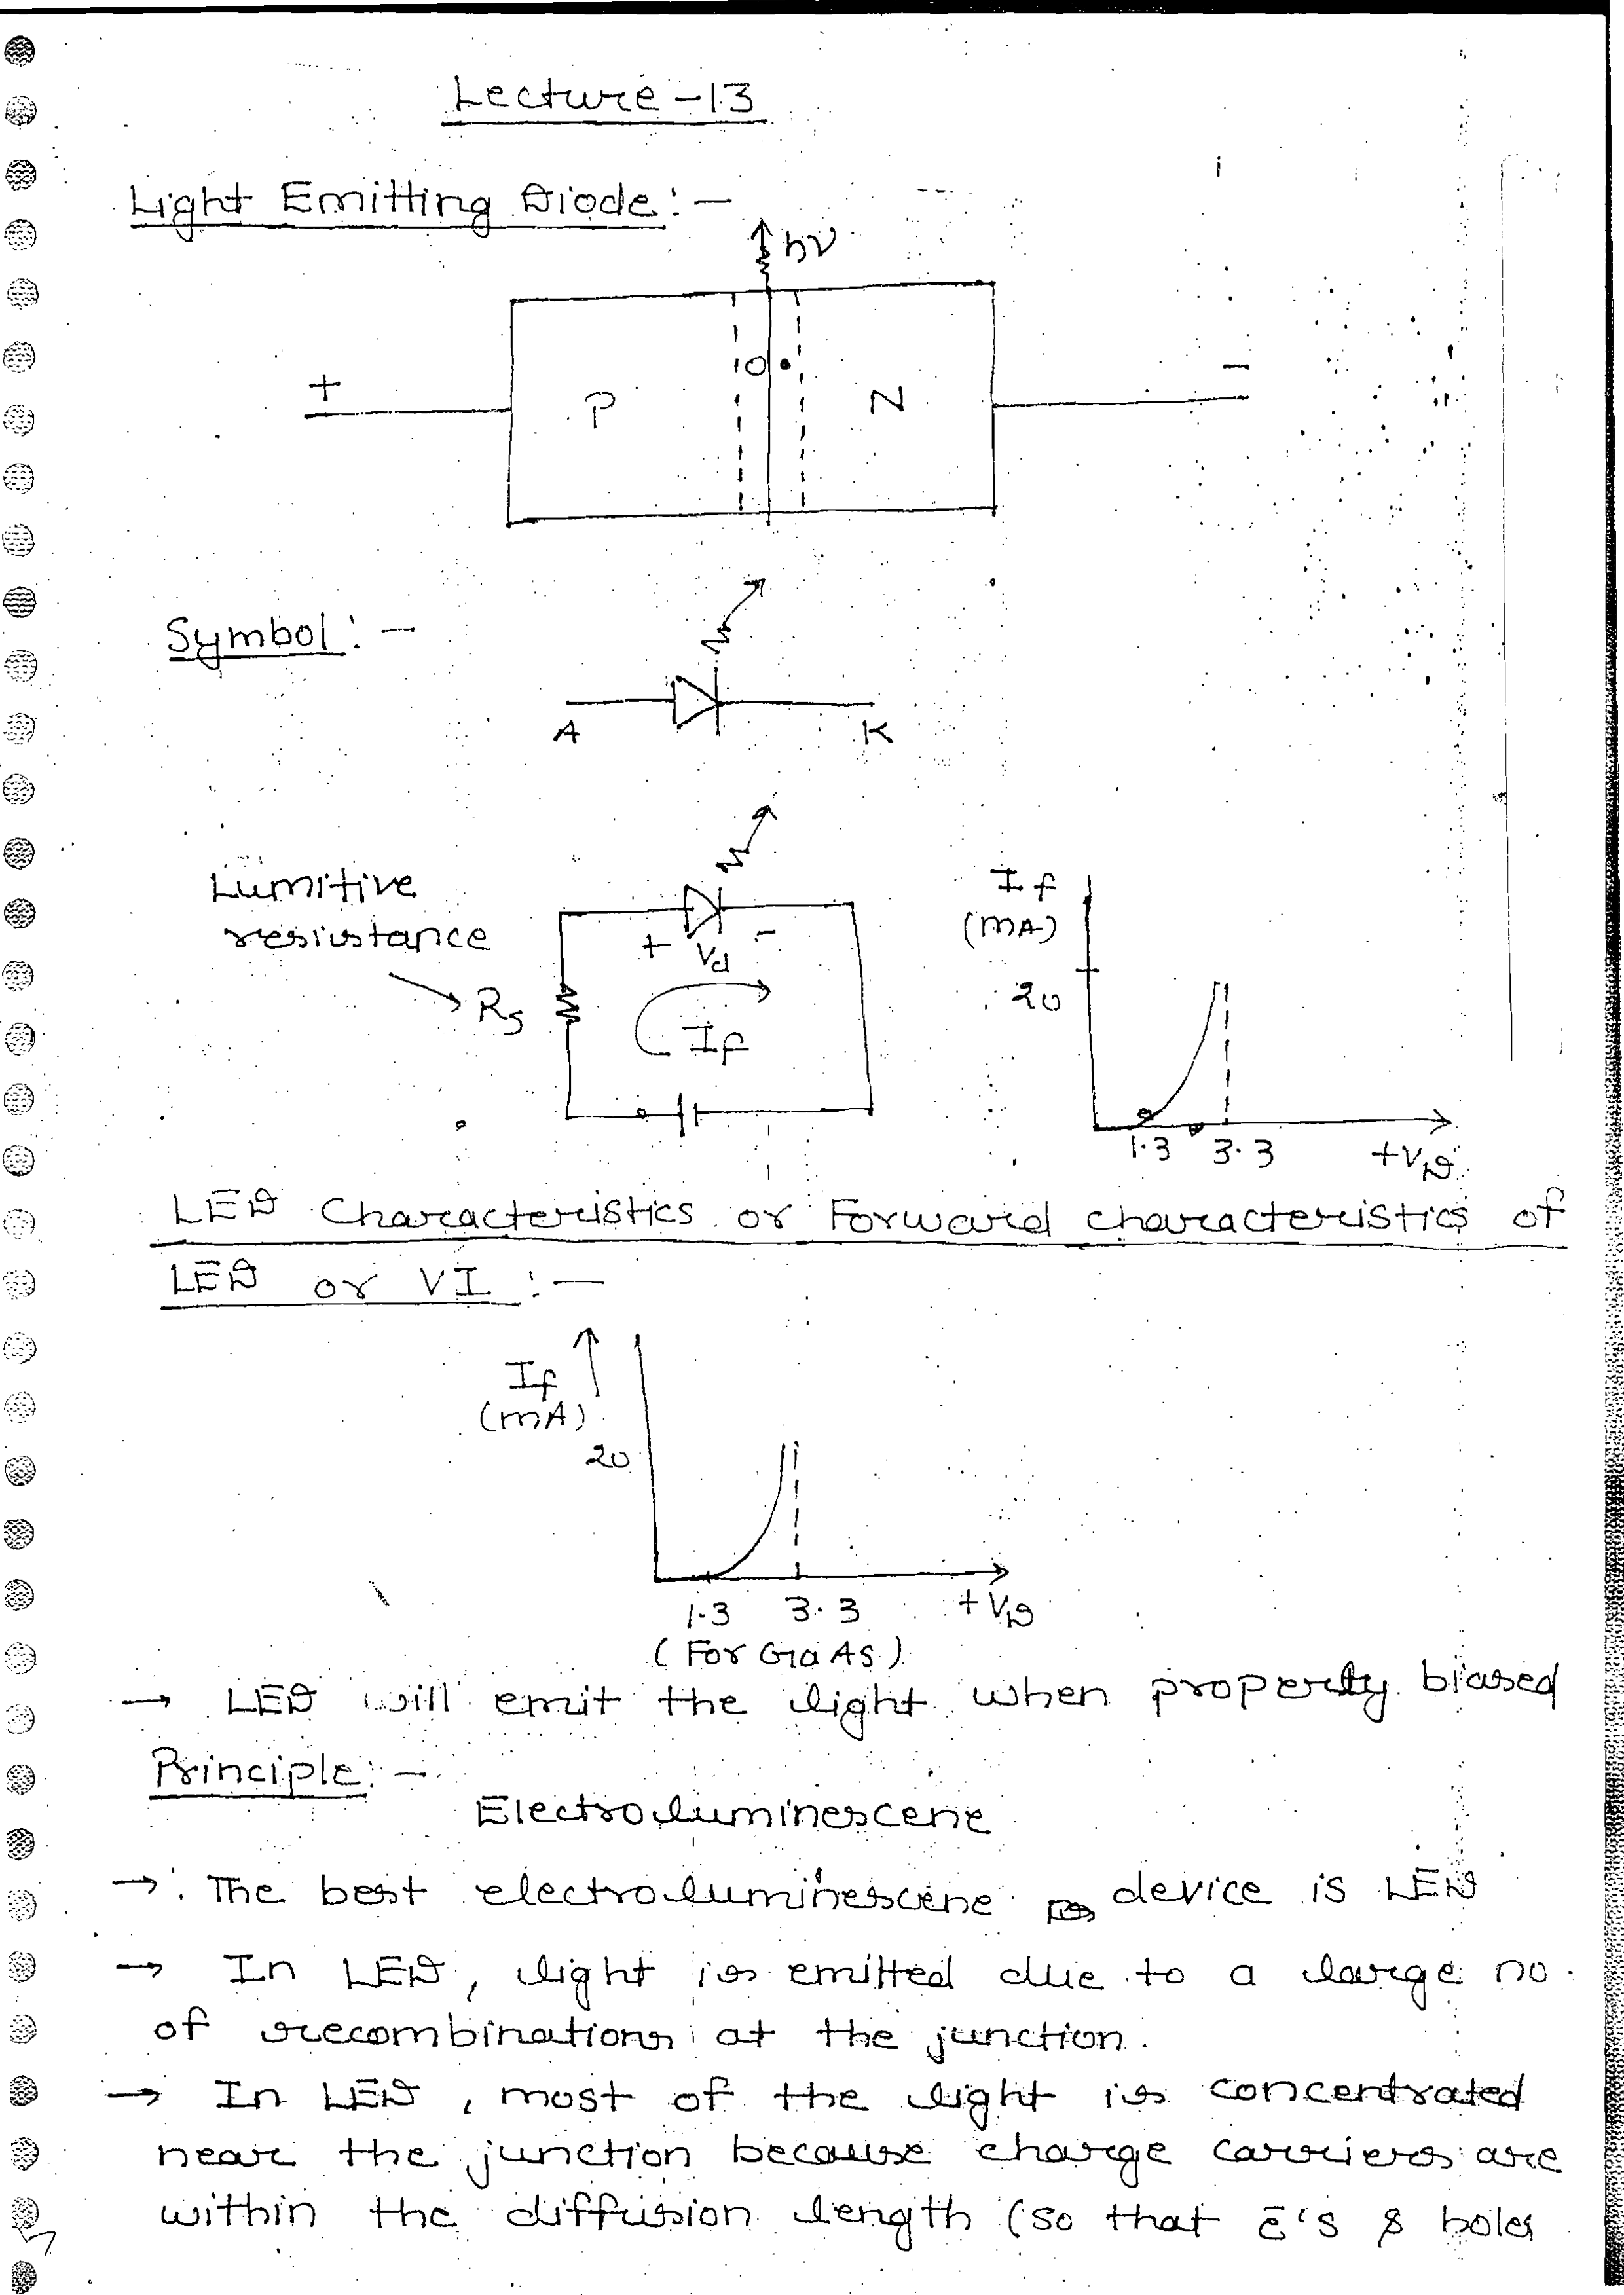 Lecture-13
Light Emitting Diode:-
hν
+ P N -
Symbol:-
A K
Lumitive
resistance
Rs
+ Vd -
If
If
(mA)
20
1.3 3.3 +VD
LED Characteristics or Forward characteristics of
LED or VI :-
If
(mA)
20
1.3 3.3 +VD
(For GaAs)
→ LED will emit the light when properly biased
Principle:-
Electroluminescene
→ The best electroluminescene device is LED
→ In LED, light is emitted due to a large no.
of recombinations at the junction.
→ In LED, most of the light is concentrated
near the junction because charge carriers are
within the diffusion length (so that ē's & holes